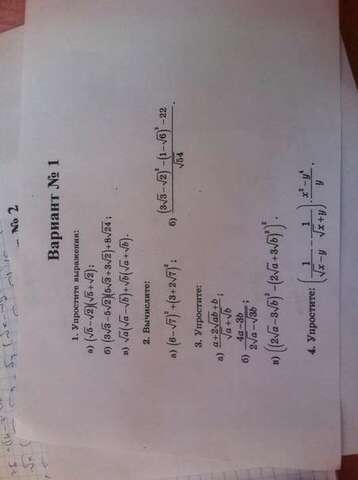 № 2
Вариант № 1
1. Упростите выражения:
а) (√5−√2)(√5+√2);
б) (3√3−5√2)(5√3+3√2)+8√24;
в) √a(√a−√b)+√b(√a+√b).
2. Вычислите:
а) (6−√7)²+(3+2√7)²;
б) ((3√3−√2)²−(1−√6)²−22)/√54.
3. Упростите:
а) (a+2√ab+b)/(√a+√b);
б) (4a−3b)/(2√a−√3b);
в) ((2√a−3√b)²−(2√a+3√b)²)².
4. Упростите: (1/(√x−y)−1/(√x+y))·(x²−y⁴)/y.